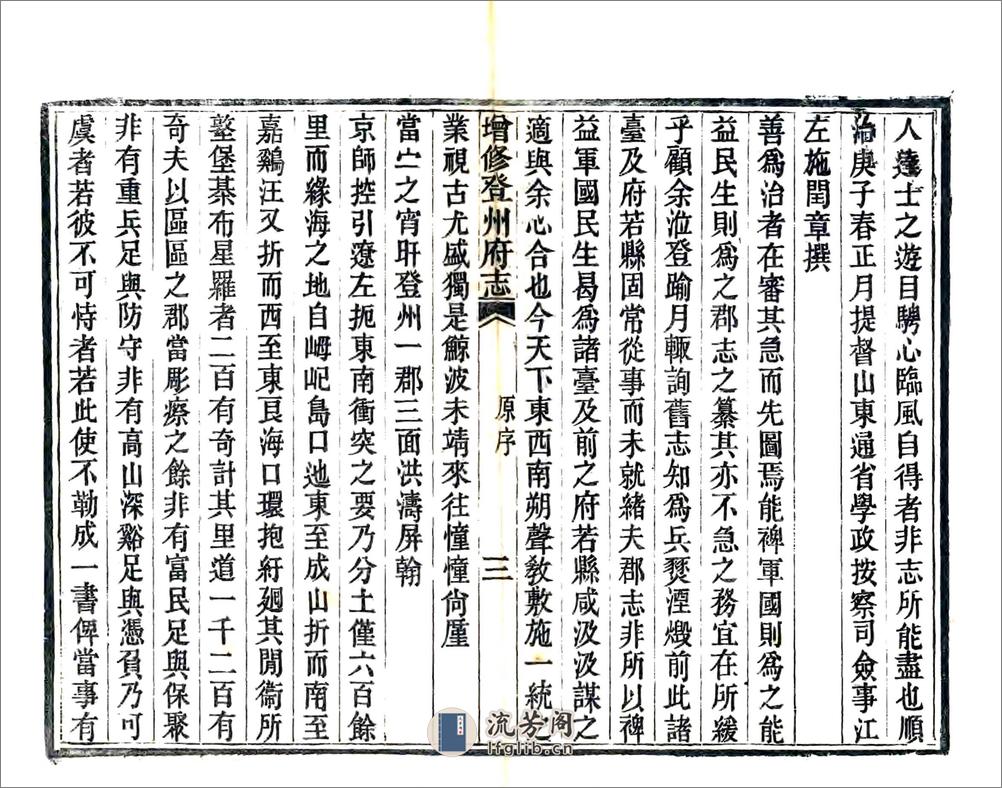 人達士之遊目騁心臨風自得者非志所能盡也順
治庚子春正月提督山東通省學政按察司僉事江
左施閏章撰
善爲治者在審其急而先圖焉能裨軍國則爲之能
益民生則爲之郡志之纂其亦不急之務宜在所緩
乎顧余涖登踰月輒詢舊志知爲兵燹湮燬前此諸
臺及府若縣固常從事而未就緒夫郡志非所以裨
益軍國民生曷爲諸臺及前之府若縣咸汲汲謀之
適與余心合也今天下東西南朔聲敎敷施一統之
增修登州府志
原序
三
業視古尤盛獨是鯨波未靖來往憧憧尙厪
當宁之宵旰登州一郡三面洪濤屏翰
京師控引遼左扼東南衝突之要乃分土僅六百餘
里而緣海之地自㟂屺島口迆東至成山折而南至
嘉鷄汪又折而西至東艮海口環抱紆廻其閒衞所
墩堡棊布星羅者二百有奇計其里道一千二百有
奇夫以區區之郡當彫瘵之餘非有富民足與保聚
非有重兵足與防守非有高山深谿足與憑負乃可
虞者若彼不可恃者若此使不勒成一書俾當事有
流芳阁
lfglib.cn